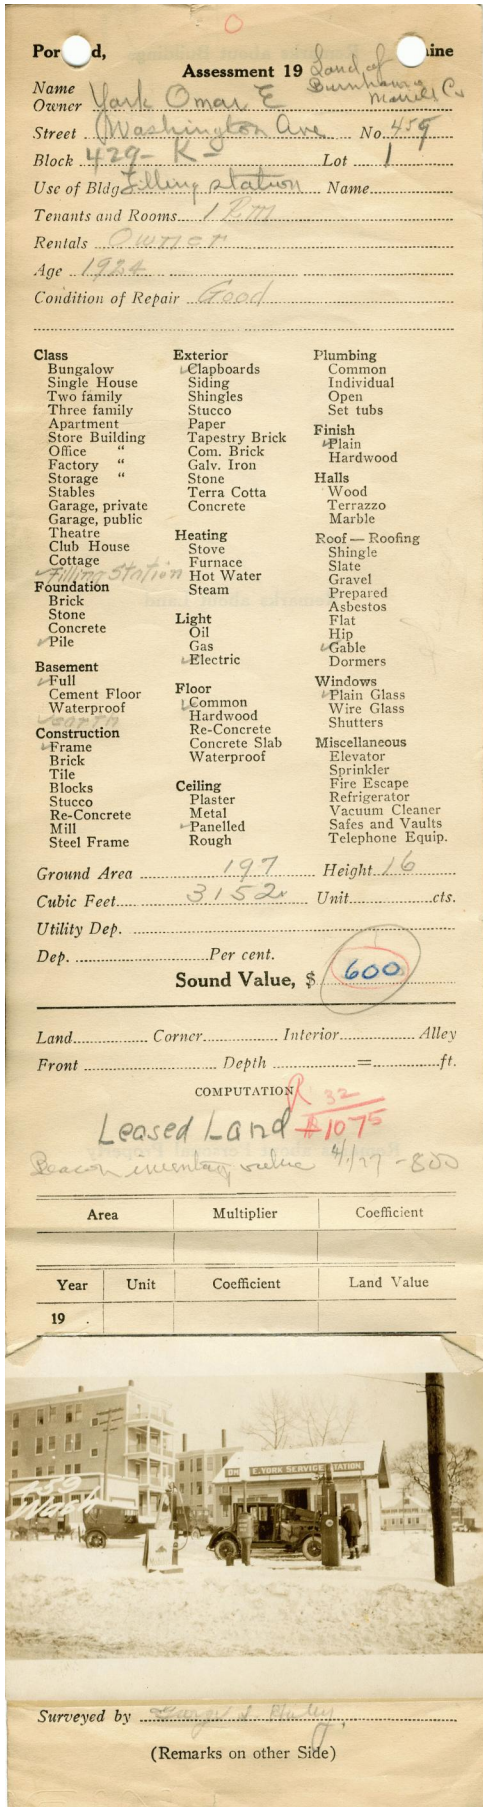 O
Por d, ine
Assessment 19 Land of
Burnham &
Morrill Co
Name
Owner York Omar E
Street Washington Ave No. 459
Block 429- K- Lot 1
Use of Bldg Filling station Name
Tenants and Rooms 1 Rm
Rentals Owner
Age 1924
Condition of Repair Good
Class
Bungalow
Single House
Two family
Three family
Apartment
Store Building
Office "
Factory "
Storage "
Stables
Garage, private
Garage, public
Theatre
Club House
Cottage
✓Filling Station
Foundation
Brick
Stone
Concrete
✓Pile
Basement
✓Full
Cement Floor
Waterproof
✓earth
Construction
✓Frame
Brick
Tile
Blocks
Stucco
Re-Concrete
Mill
Steel Frame
Exterior
✓Clapboards
Siding
Shingles
Stucco
Paper
Tapestry Brick
Com. Brick
Galv. Iron
Stone
Terra Cotta
Concrete
Heating
Stove
Furnace
Hot Water
Steam
Light
Oil
Gas
✓Electric
Floor
✓Common
Hardwood
Re-Concrete
Concrete Slab
Waterproof
Ceiling
Plaster
Metal
✓Panelled
Rough
Plumbing
Common
Individual
Open
Set tubs
Finish
✓Plain
Hardwood
Halls
Wood
Terrazzo
Marble
Roof — Roofing
Shingle
Slate
Gravel
Prepared
Asbestos
Flat
Hip
✓Gable
Dormers
Windows
✓Plain Glass
Wire Glass
Shutters
Miscellaneous
Elevator
Sprinkler
Fire Escape
Refrigerator
Vacuum Cleaner
Safes and Vaults
Telephone Equip.
Ground Area 197 Height 16
Cubic Feet 3152 Unit cts.
Utility Dep.
Dep. Per cent.
Sound Value, $ 600
Land Corner Interior Alley
Front Depth = ft.
COMPUTATION
R 32
Leased Land $1075
Beacon inventory value 4/1/27 - 800
Area Multiplier Coefficient
Year Unit Coefficient Land Value
19 .
E. YORK SERVICE STATION
459
Wash
Surveyed by George
(Remarks on other Side)